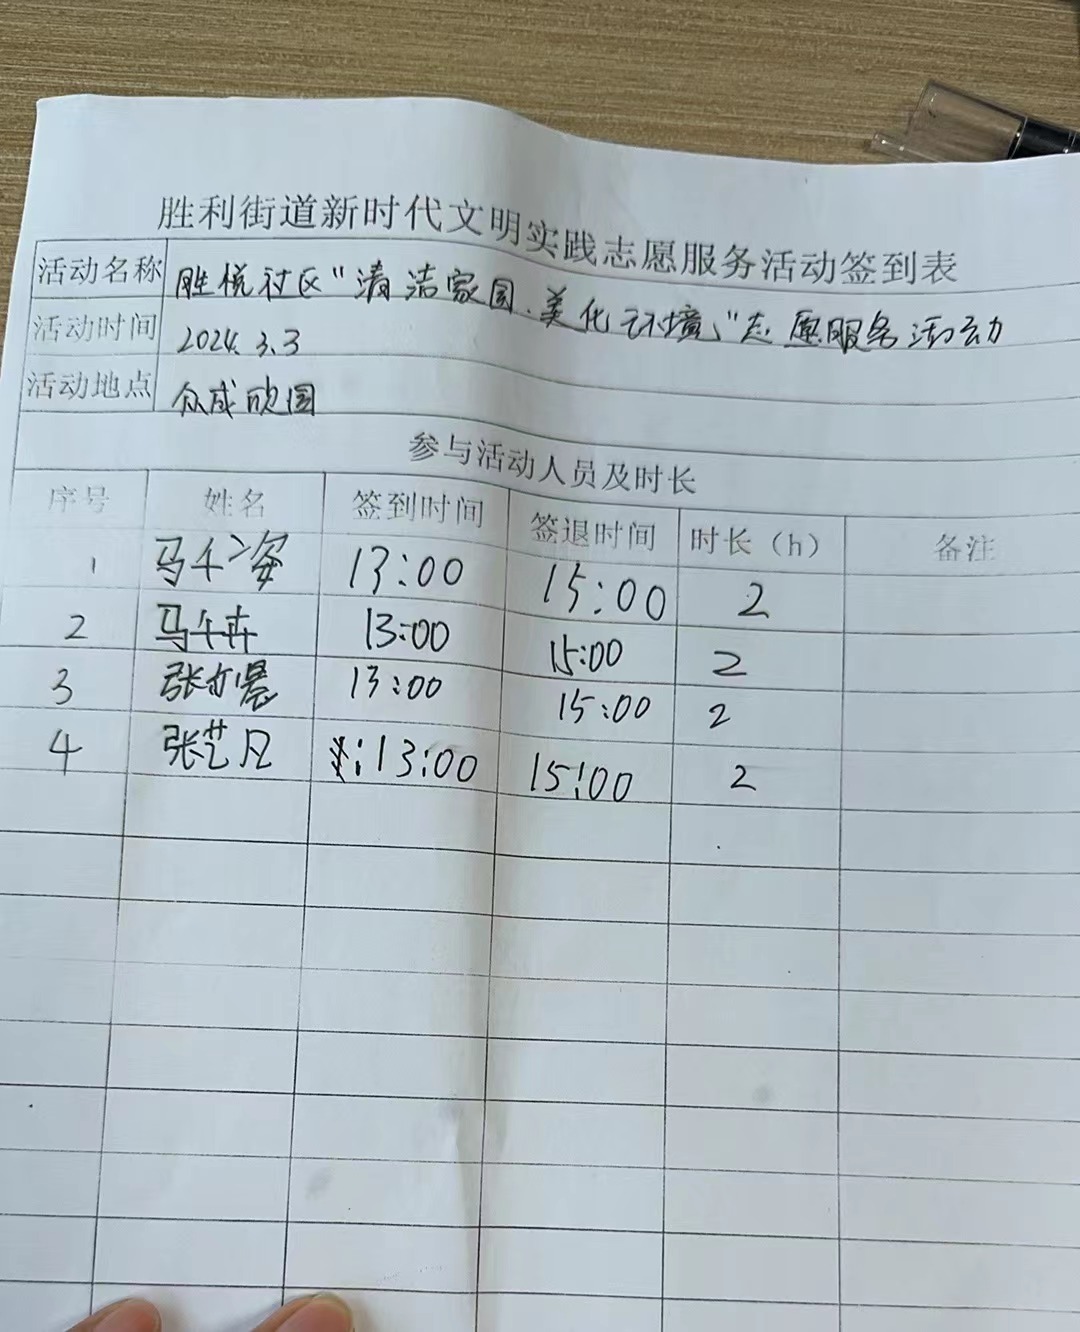 胜利街道新时代文明实践志愿服务活动签到表
活动名称 胜悦社区"清洁家园、美化环境"志愿服务活动
活动时间 2024.3.3
活动地点 众成欣园
参与活动人员及时长
序号 姓名 签到时间 签退时间 时长（h） 备注
1 马千姿 13:00 15:00 2
2 马千卉 13:00 15:00 2
3 张 13:00 15:00 2
4 张艺凡 13:00 15:00 2